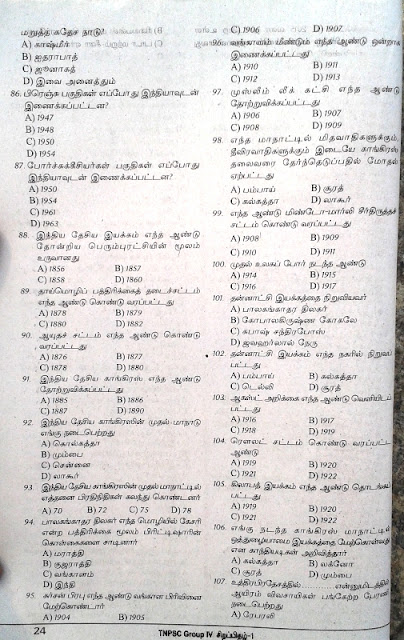 மறுத்த சுதேச நாடு?
A) காஷ்மீர்
B) ஐதராபாத்
C) ஜூனாகத்
D) இவை அனைத்தும்
86. பிரெஞ்சு பகுதிகள் எப்போது இந்தியாவுடன்
இணைக்கப்பட்டன?
A) 1947
B) 1948
C) 1950
D) 1954
87. போர்ச்சுக்கீசியர்கள் பகுதிகள் எப்போது
இந்தியாவுடன் இணைக்கப்பட்டன?
A) 1950
B) 1954
C) 1961
D) 1963
88. இந்திய தேசிய இயக்கம் எந்த ஆண்டு
தோன்றிய பெரும்புரட்சியின் மூலம்
உருவானது
A) 1856 B) 1857
C) 1858 D) 1860
89. தாய்மொழிப் பத்திரிக்கைத் தடைச்சட்டம்
எந்த ஆண்டு கொண்டு வரப்பட்டது
A) 1878 B) 1879
C) 1880 D) 1882
90. ஆயுதச் சட்டம் எந்த ஆண்டு கொண்டு
வரப்பட்டது
A) 1876 B) 1877
C) 1878 D) 1880
91. இந்திய தேசிய காங்கிரஸ் எந்த ஆண்டு
தோற்றுவிக்கப்பட்டது
A) 1885 B) 1886
C) 1887 D) 1890
92. இந்திய தேசிய காங்கிரஸின் முதல் மாநாடு
எங்கு நடைபெற்றது
A) கொல்கத்தா
B) மும்பை
C) சென்னை
D) லாகூர்
93. இந்திய தேசிய காங்கிரஸின் முதல் மாநாட்டில்
எத்தனை பிரதிநிதிகள் கலந்து கொண்டனர்
A) 70 B) 72 C) 75 D) 78
94. பாலகங்காதர திலகர் எந்த மொழியில் கேசரி
என்ற பத்திரிக்கை மூலம் பிரிட்டிஷாரின்
கொள்கைகளை சாடினார்
A) மராத்தி
B) குஜராத்தி
C) வங்காளம்
D) இந்தி
95. கர்சன் பிரபு எந்த ஆண்டு வங்கான பிரிவினை
மேற்கொண்டார்
A) 1904 B) 1905
C) 1906 D) 1907
96. வங்காளம் மீண்டும் எந்த ஆண்டு ஒன்றாக
இணைக்கப்பட்டது
A) 1910 B) 1911
C) 1912 D) 1913
97. முஸ்லீம் லீக் கட்சி எந்த ஆண்டு
தோற்றுவிக்கப்பட்டது
A) 1906 B) 1907
C) 1908 D) 1909
98. எந்த மாநாட்டில் மிதவாதிகளுக்கும்,
தீவிரவாதிகளுக்கும் இடையே காங்கிரஸ்
தலைவரை தேர்ந்தெடுப்பதில் மோதல்
ஏற்பட்டது
A) பம்பாய் B) சூரத்
C) கல்கத்தா D) லாகூர்
99. எந்த ஆண்டு மிண்டோ-மார்லி சீர்திருத்தச்
சட்டம் கொண்டு வரப்பட்டது
A) 1908 B) 1909
C) 1910 D) 1911
100. முதல் உலகப் போர் நடந்த ஆண்டு
A) 1914 B) 1915
C) 1916 D) 1917
101. தன்னாட்சி இயக்கத்தை நிறுவியவர்
A) பாலகங்காதர திலகர்
B) கோபாலகிருஷ்ண கோகலே
C) சுபாஷ் சந்திரபோஸ்
D) ஜவஹர்லால் நேரு
102. தன்னாட்சி இயக்கம் எந்த நகரில் நிறுவப்
பட்டது
A) பம்பாய் B) கல்கத்தா
C) டெல்லி D) சூரத்
103. ஆகஸ்ட் அறிக்கை எந்த ஆண்டு வெளியிடப்
பட்டது
A) 1916 B) 1917
C) 1918 D) 1919
104. ரௌலட் சட்டம் கொண்டு வரப்பட்ட
ஆண்டு
A) 1919 B) 1920
C) 1921 D) 1922
105. கிலாபத் இயக்கம் எந்த ஆண்டு தொடங்கப்
பட்டது
A) 1919 B) 1920
C) 1921 D) 1922
106. எங்கு நடந்த காங்கிரஸ் மாநாட்டில்
ஒத்துழையாமை இயக்கத்தை மேற்கொள்வது
என காந்தியடிகள் அறிவித்தார்
A) கல்கத்தா B) லக்னோ
C) சூரத் D) மும்பை
107. உத்திரபிரதேசத்தில்........என்னுமிடத்தில்
ஆயிரம் விவசாயிகள் பங்கேற்ற பேரணி
நடைபெற்றது
A) ரேபரலி
24
TNPSC Group IV சிறப்பிதழ்-1